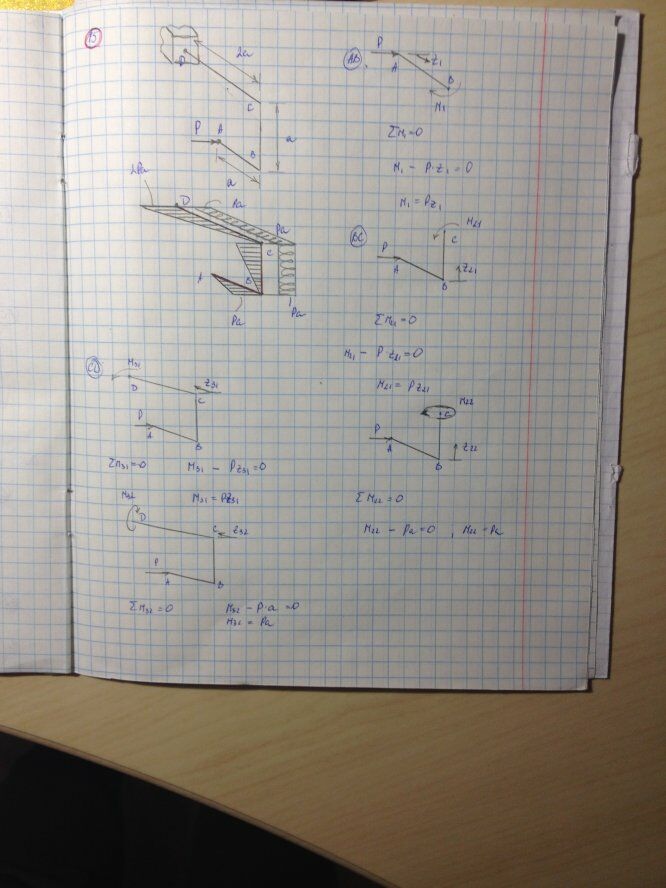 15
2a
D
C
P A
a
B
a
2Pa
D
Pa
Pa
C
A
B
Pa
Pa
AB
P
A
z₁
B
M₁
ΣM₁=0
M₁ - P·z₁ = 0
M₁ = Pz₁
BC
M₂₁
C
P
A
z₂₁
B
ΣM₂₁=0
M₂₁ - P·z₂₁=0
M₂₁ = Pz₂₁
M₂₂
C
P
A
z₂₂
B
ΣM₂₂=0
M₂₂ - Pa=0 , M₂₂=Pa
CD
M₃₁
D
z₃₁
C
P
A
B
ΣM₃₁=0 M₃₁ - Pz₃₁=0
M₃₁=Pz₃₁
M₃₂
D
C z₃₂
P
A
B
ΣM₃₂=0 M₃₂ - P·a =0
M₃₂ = Pa